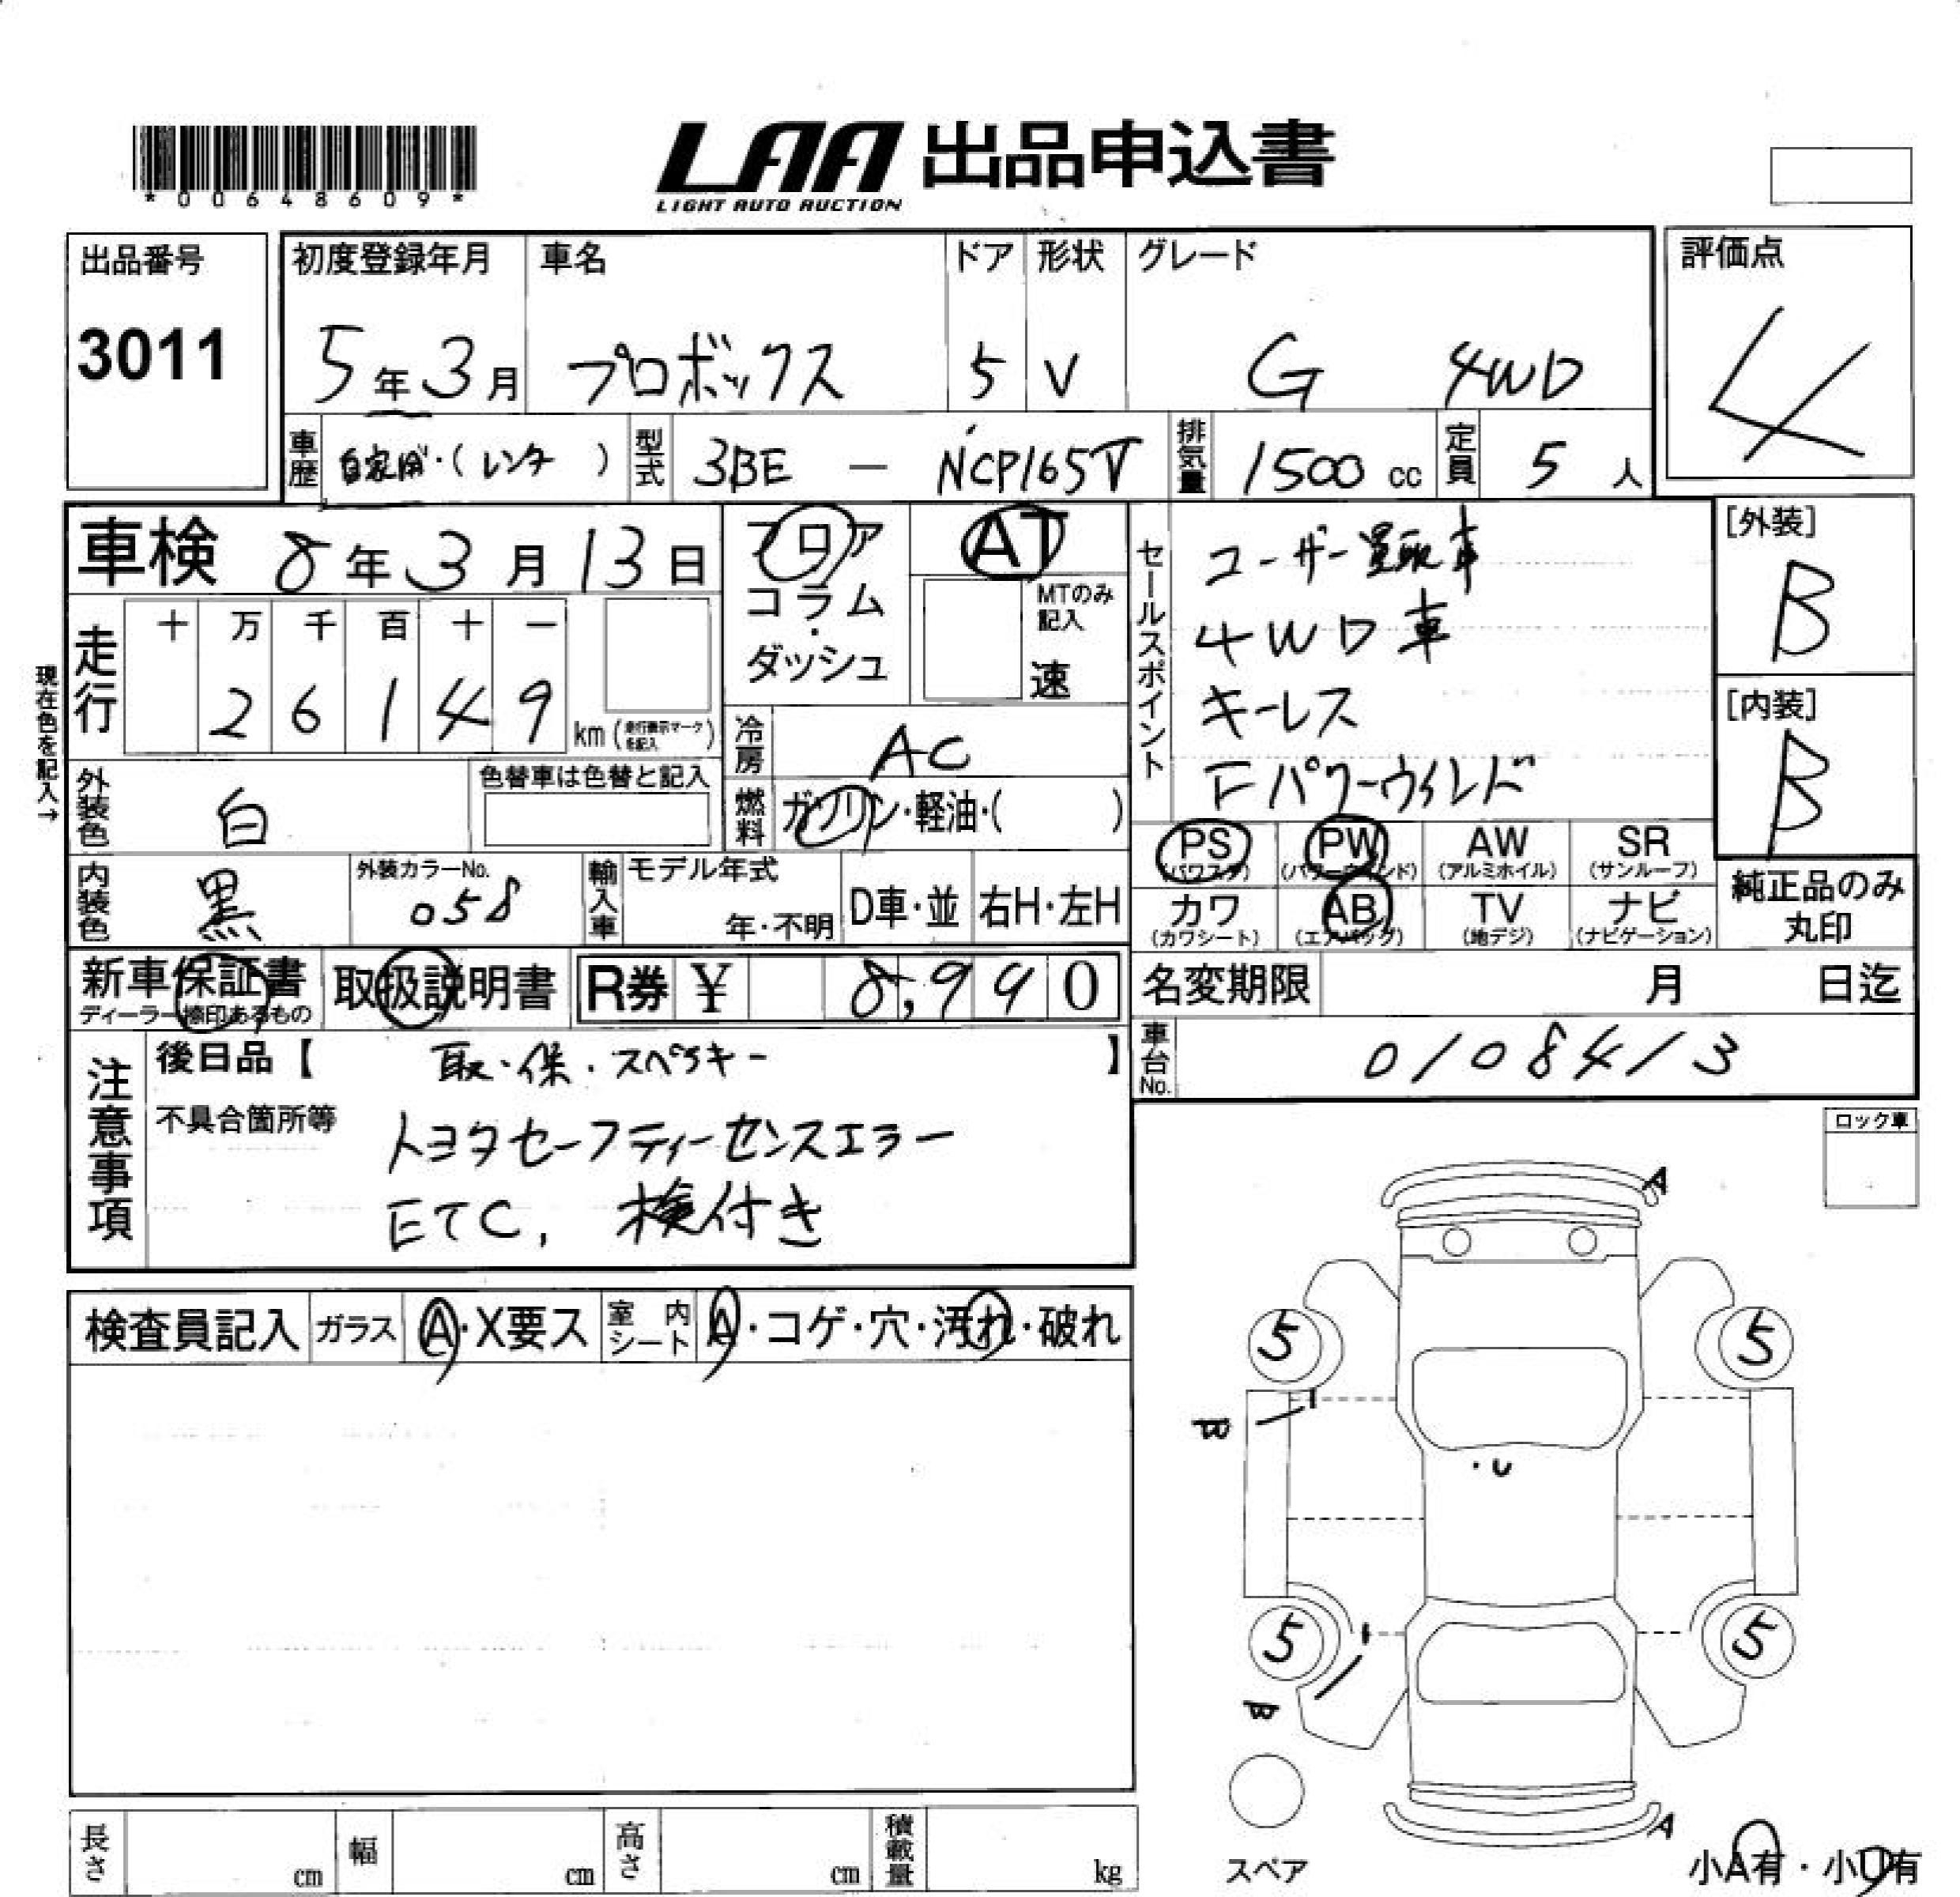 *00648609*
LAA 出品申込書
LIGHT AUTO AUCTION
出品番号
3011
初度登録年月
5年3月
車名
プロボックス
ドア
5
形状
V
グレード
G 4WD
評価点
4
車歴 自家用・(レンタ)
型式 3BE - NCP165V
排気量 1500 cc
定員 5 人
車検 8年3月13日
フロア
コラム
・
ダッシュ
AT
MTのみ
記入
速
セールスポイント
ユーザー買取車
4WD車
キーレス
Fパワーウィンド
[外装]
B
[内装]
B
現在色を記入→
走行
十 万 千 百 十 一
2 6 1 4 9
km(走行表示マークを記入)
冷房 AC
外装色 白
色替車は色替と記入
燃料 ガソリン・軽油・( )
PS (パワステ)
PW (パワーウインド)
AW (アルミホイル)
SR (サンルーフ)
カワ (カワシート)
AB (エアバッグ)
TV (地デジ)
ナビ (ナビゲーション)
純正品のみ
丸印
内装色 黒
外装カラーNo.
058
輸入車
モデル年式
年・不明
D車・並
右H・左H
新車保証書
ディーラー捺印あるもの
取扱説明書
R券 ¥ 8,990
名変期限 月 日迄
車台No. 0108413
注意事項
後日品【 取・保・スペアキー 】
不具合箇所等
トヨタセーフティーセンスエラー
ETC, 検付き
ロック車
検査員記入
ガラス A・X要ス
室内シート A・コゲ・穴・汚れ・破れ
A
5
5
B
・U
5
5
B
A
スペア
小A有・小U有
長さ cm
幅 cm
高さ cm
積載量 kg